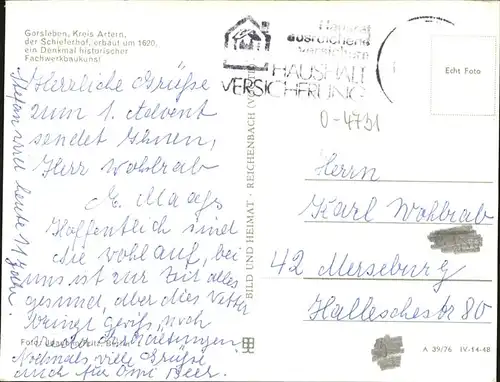 Gorsleben, Kreis Artern,
der Schieferhof, erbaut um 1620,
ein Denkmal historischer
Fachwerkbaukunst
Herzliche Grüße
zum 1. Advent
sendet Ihnen,
Herr Wohlrab
E. Maaß
Hoffentlich sind
Sie wohlauf, bei
uns ist zur Zeit alles
gesund, aber dies Wetter
bringt gewiß noch
Nochmals viele Grüße
auch für Omi Beer.
Stefan wird heute 11 Jahr.
Foto:
BILD UND HEIMAT · REICHENBACH
Hausrat
ausreichend
versichern
HAUSHALT
VERSICHERUNG
Echt Foto
0-4791
Herrn
Karl Wohlrab
42 Merseburg
Hallesche str 80
A 39/76 IV-14-48